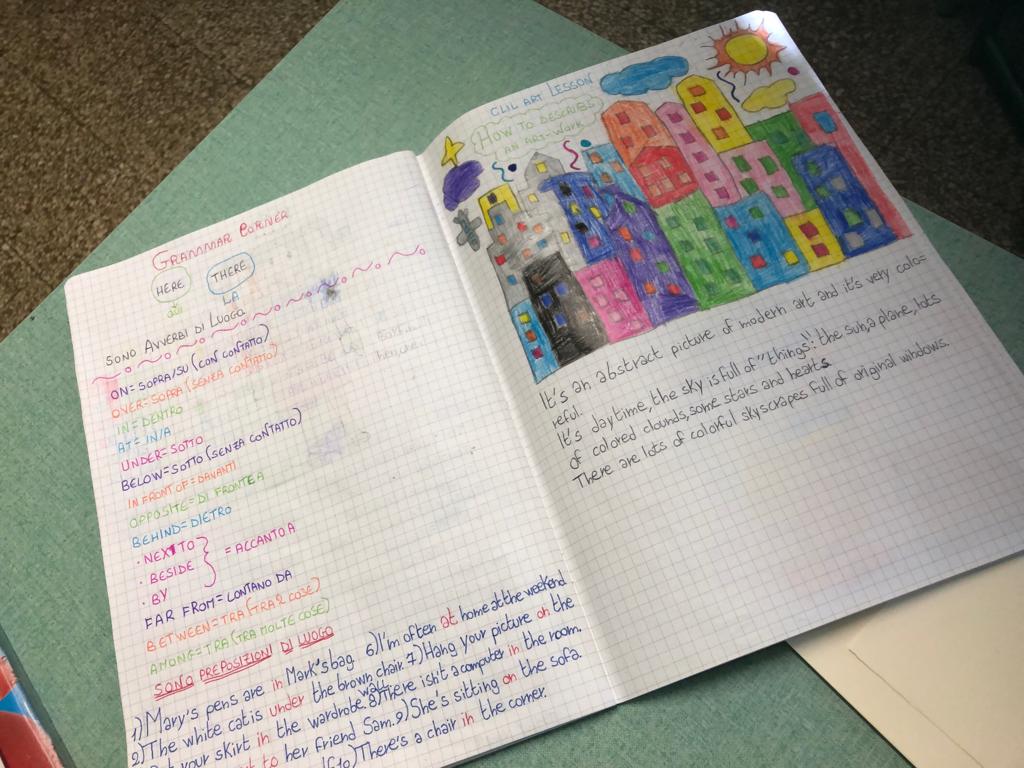 GRAMMAR CORNER
HERE THERE
QUI LÀ
SONO AVVERBI DI LUOGO
ON= SOPRA/SU (CON CONTATTO)
OVER= SOPRA (SENZA CONTATTO)
IN= DENTRO
AT= IN/A
UNDER= SOTTO
BELOW= SOTTO (SENZA CONTATTO)
IN FRONT OF= DAVANTI
OPPOSITE= DI FRONTE A
BEHIND= DIETRO
· NEXT TO
· BESIDE = ACCANTO A
· BY
FAR FROM= LONTANO DA
BETWEEN= TRA (TRA 2 COSE)
AMONG= TRA (TRA MOLTE COSE)
SONO PREPOSIZIONI DI LUOGO
1) Mary's pens are in Mark's bag. 6) I'm often at home at the weekend
2) The white cat is under the brown chair. 7) Hang your picture on the
wall.
your skirt in the wardrobe. 8) There isn't a computer in the room.
to her friend Sam. 9) She's sitting on the sofa.
10) There's a chair in the corner.
CLIL ART LESSON
HOW TO DESCRIBE
AN ART-WORK
It's an abstract picture of modern art and it's very colo=
reful.
It's daytime, the sky is full of "things": the sun, a plane, lots
of colored clounds, some stars and hearts.
There are lots of colorful skyscrapes full of original windows.